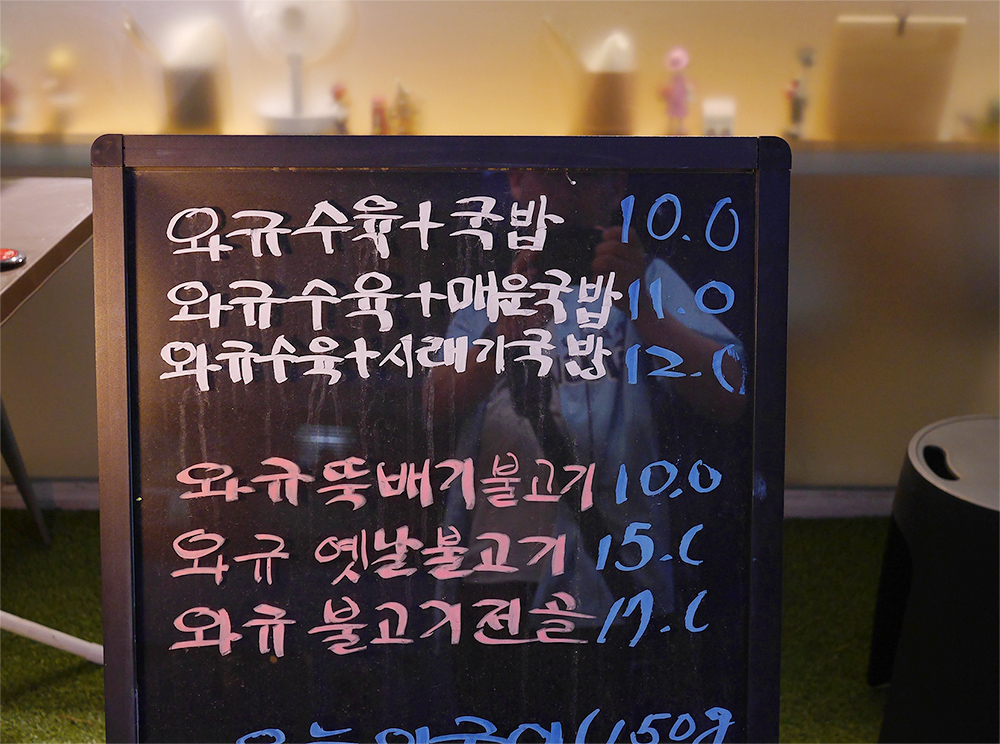 와규수육+국밥 10.0
와규수육+매운국밥 11.0
와규수육+시래기국밥 12.0
와규뚝배기불고기 10.0
와규 옛날불고기 15.0
와규 불고기전골 17.0
(150g